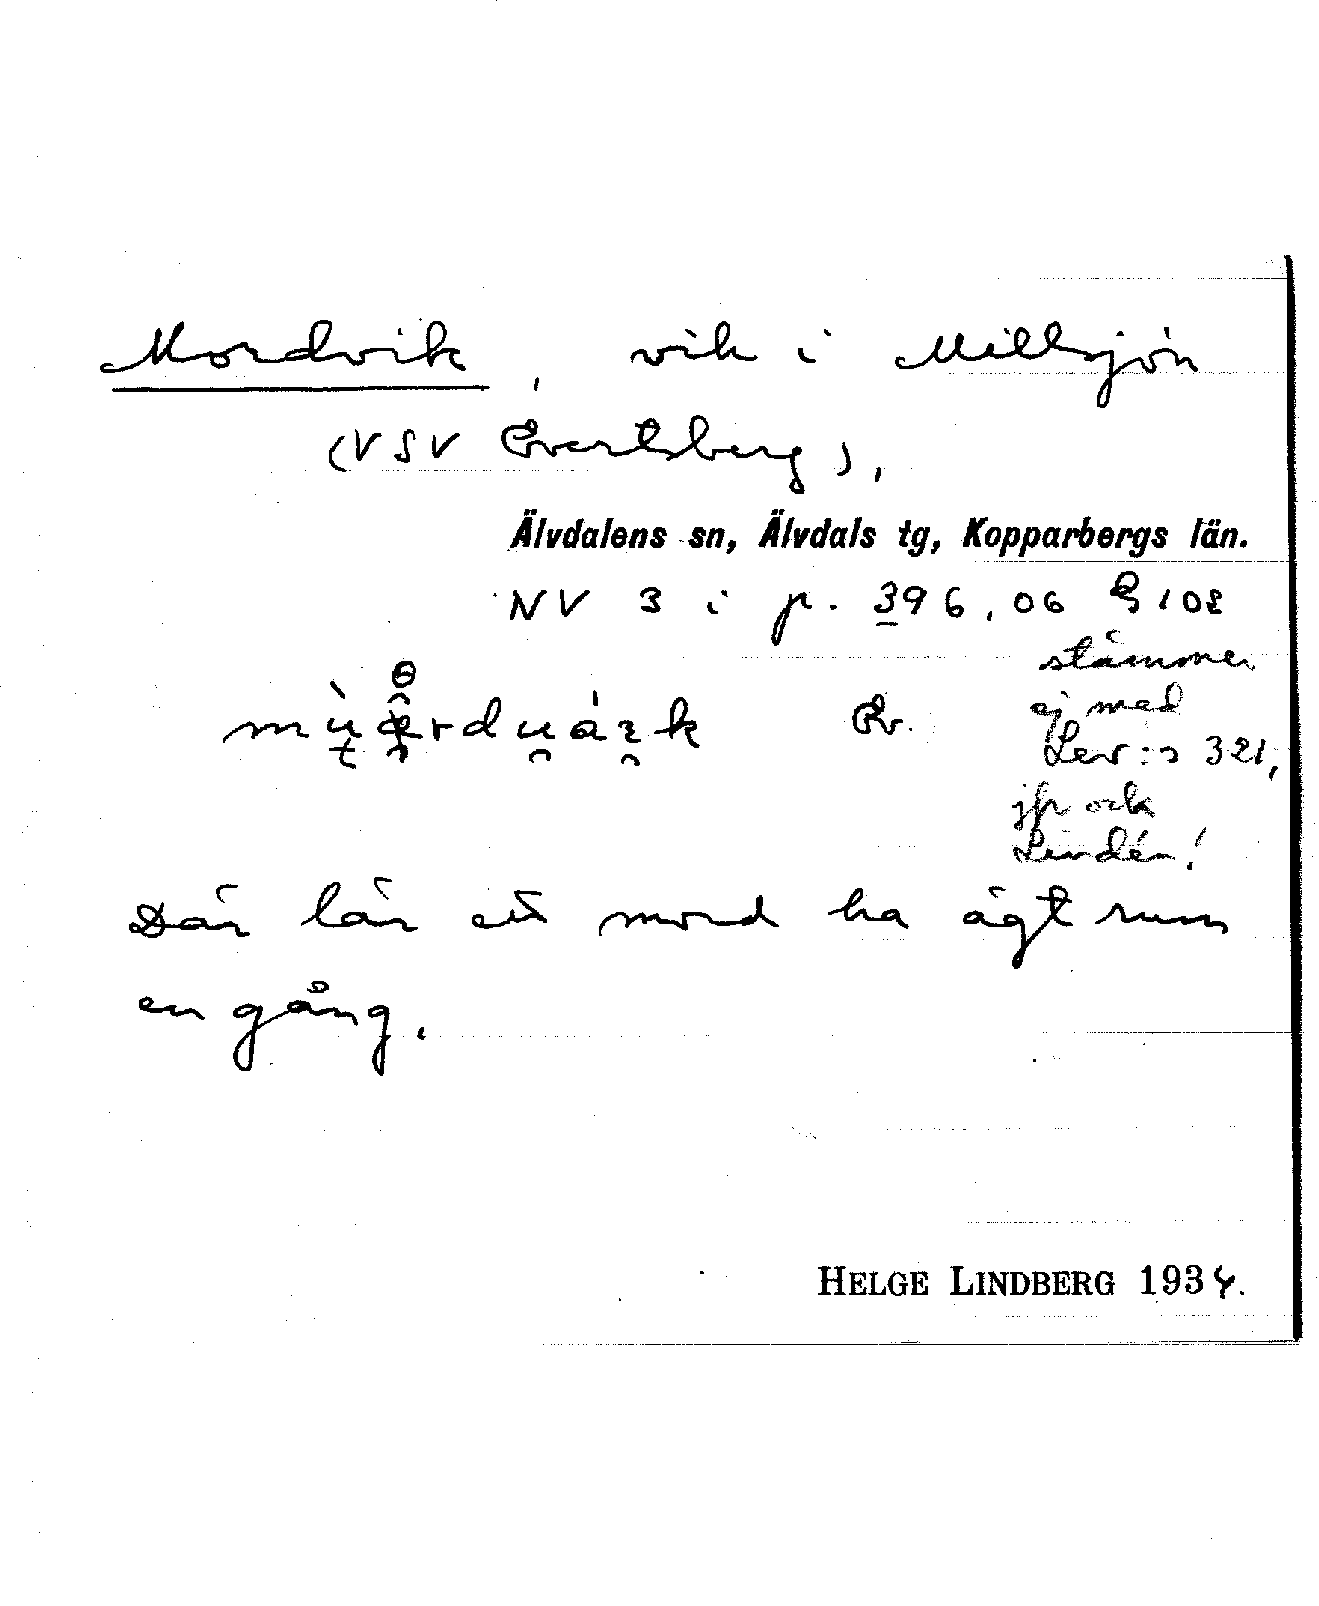 Mordvik, vik i Millsjön
(VSV Evertsberg),
Älvdalens sn, Älvdals tg, Kopparbergs län.
NV 3 i p. 396,06 108
stämmer
ej med
Lev:s 321,
jfr ock
Lindén!
Ev.
Där lär ett mord ha ägt rum
en gång.
HELGE LINDBERG 1934.